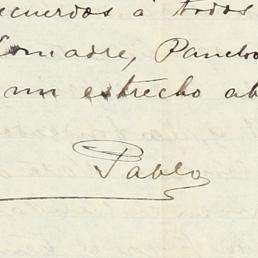 recuerdos à todos
Comadre, Pancho
un estrecho ab
Pablo